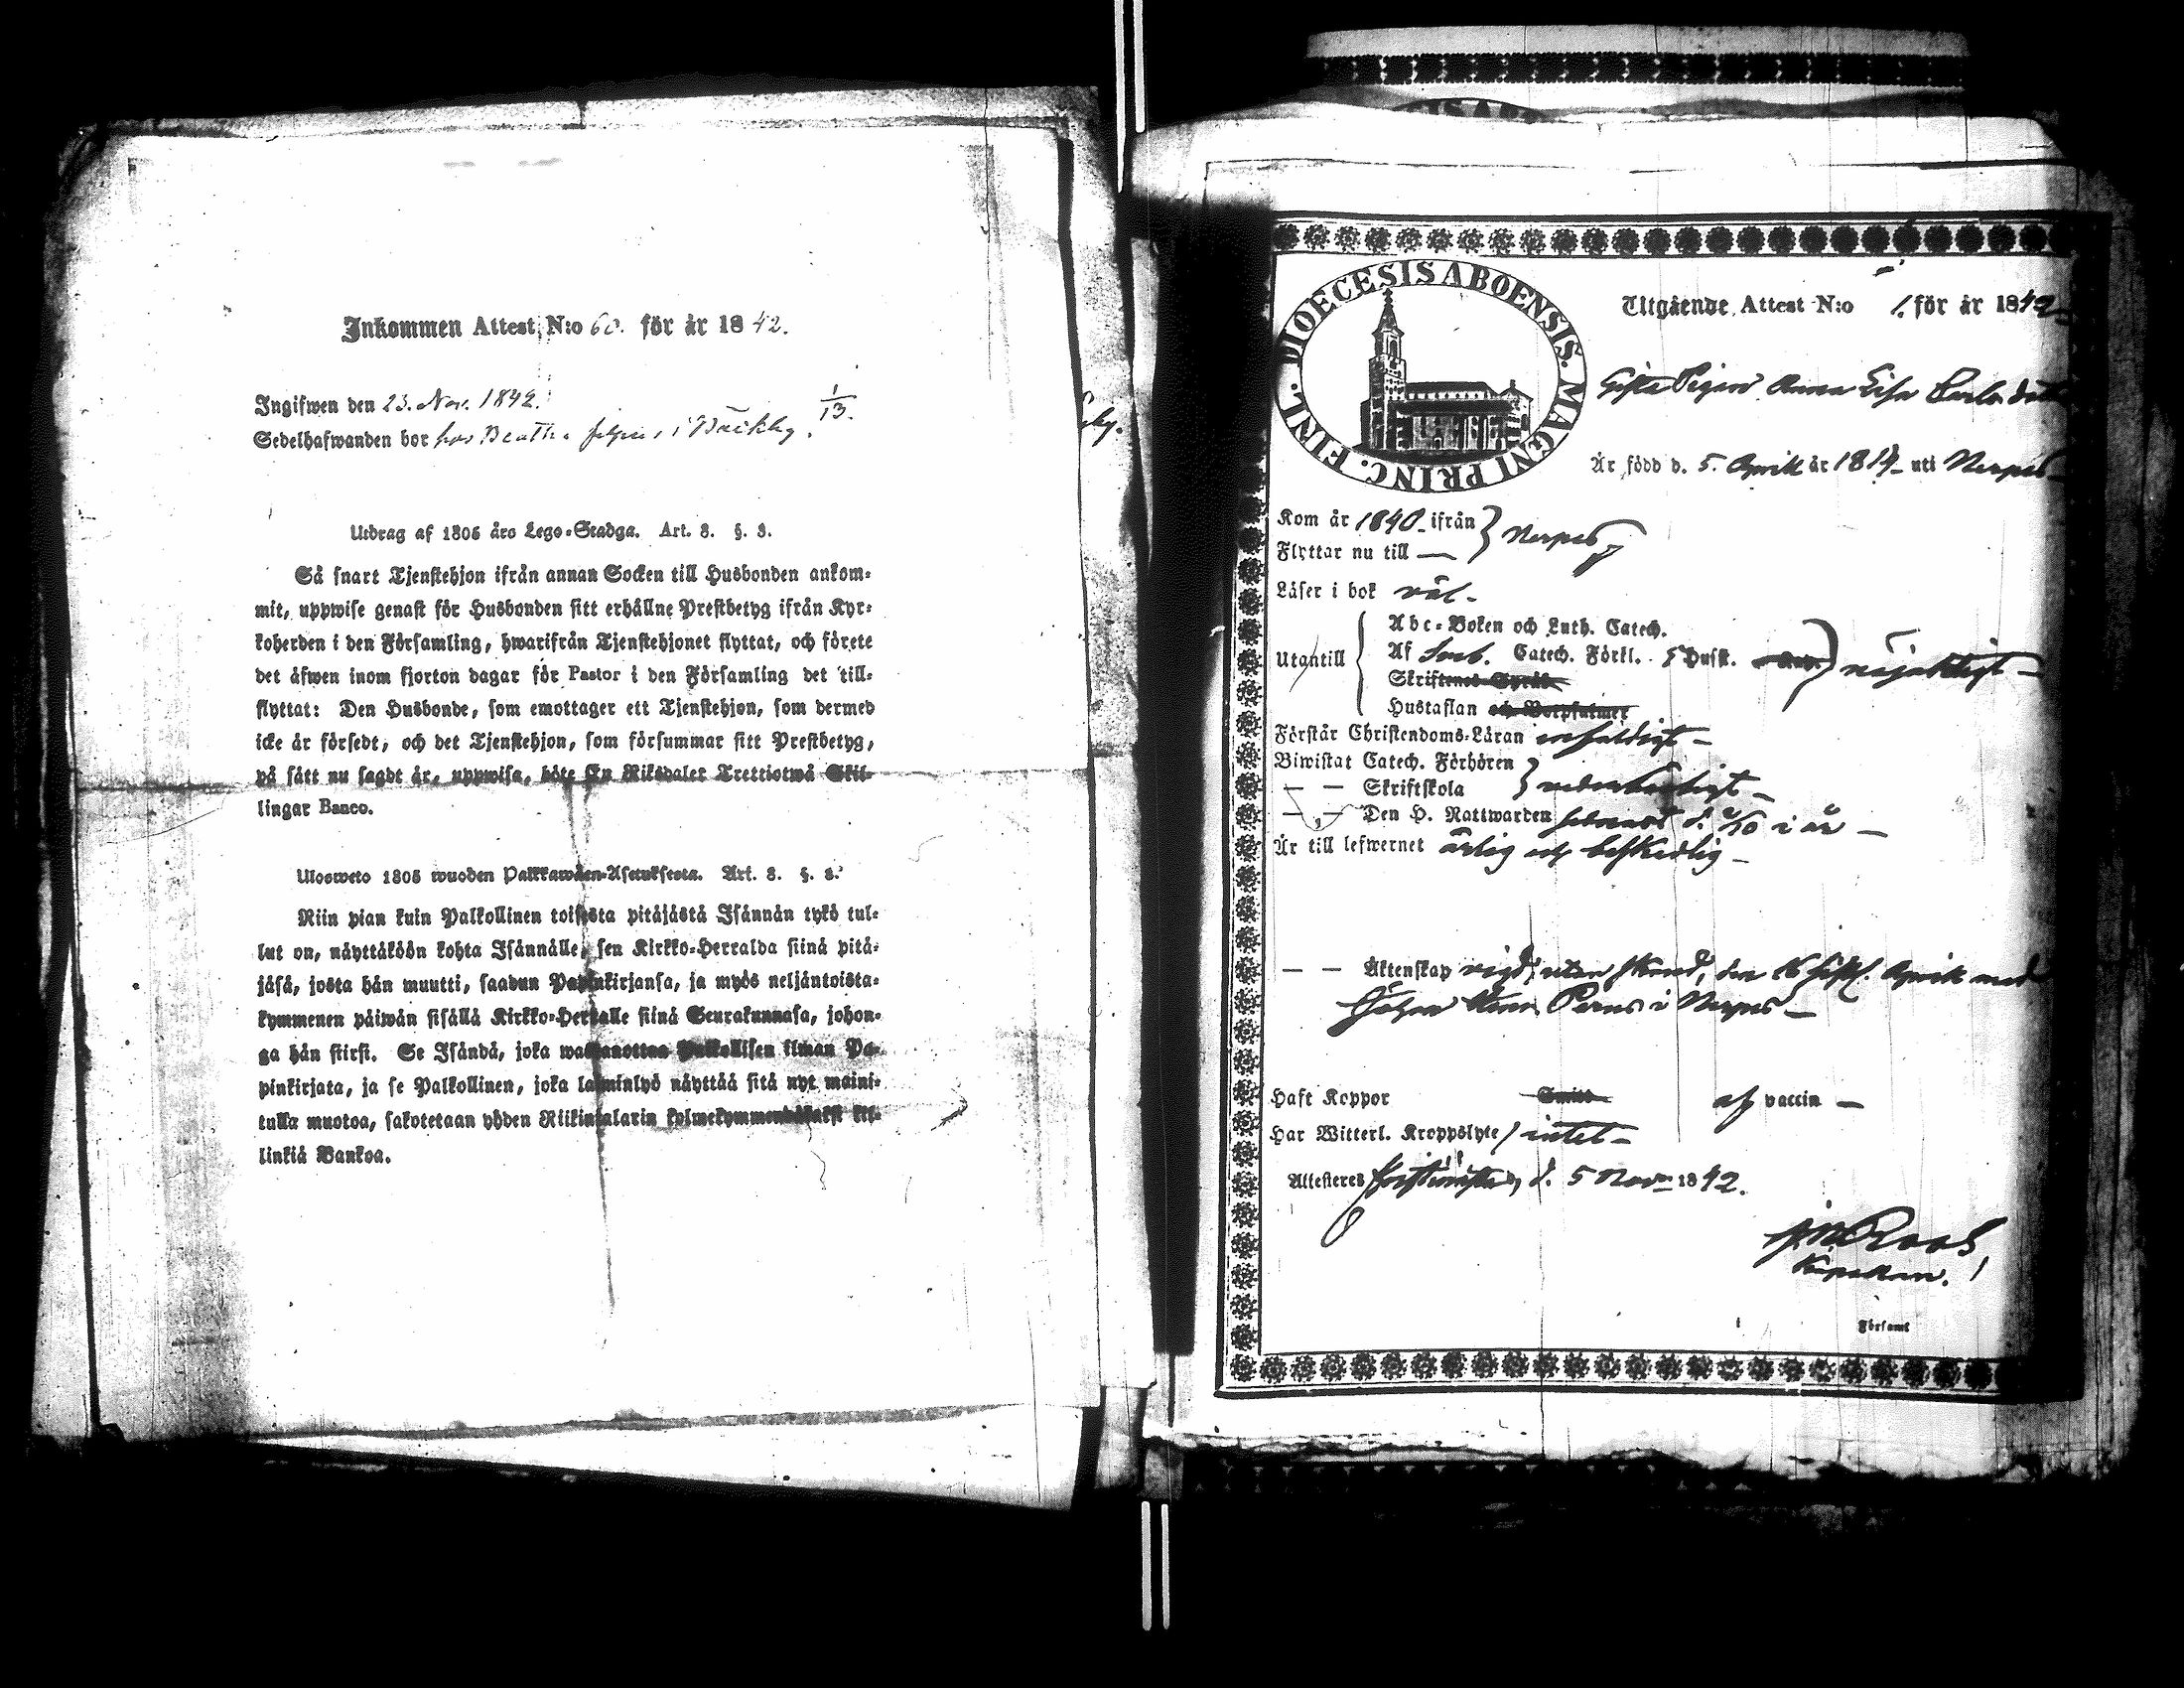 Inkommen Attest N:o 60. för år 1842.
Ingifwen den 23. Nov. 1842.
1/13.
Sedelhafwanden bor hos i Bäckby.
Utdrag af 1805 års Lego-Stadga. Art. 8. §. 3.
Så snart Tjenstehjon ifrån annan Socken till Husbonden ankom-
mit, uppwise genast för Husbonden sitt erhållne Prestbetyg ifrån Kyr-
koherden i den Församling, hwarifrån Tjenstehjonet flyttat, och förete
det äfwen inom fjorton dagar för Pastor i den Församling det till-
flyttat: Den Husbonde, som emottager ett Tjenstehjon, som dermed
icke är försedt, och det Tjenstehjon, som försummar sitt Prestbetyg,
på sätt nu sagdt är, uppwisa, böte En Riksdaler Trettiotwå Skil-
lingar Banco.
Ulosweto 1805 wuoden Palkkawäen-Asetuksesta. Art. 8. §. 3.
Niin pian kuin Palkollinen toisesta pitäjästä Isännän tykö tul-
lut on, näyttäköön kohta Isännälle, sen Kirkko-Herralda siinä pitä-
jäsä, josta hän muutti, saadun Papinkirjansa, ja myös neljäntoista-
kymmenen päiwän sisällä Kirkko-Herralle siinä Seurakunnasa, johon-
ga hän siirsi. Se Isändä, joka wastaanottaa Palkollisen ilman Pa-
pinkirjata, ja se Palkollinen, joka laiminlyö näyttää sitä nyt maini-
tulla muotoa, sakotetaan yhden Riikintalarin kolmekymmendäkaksi kil-
linkiä Bankoa.
DIOECESIS ABOENSIS. MAGNI PRINC. FINL.
Utgående Attest N:o 1. för år 1842
Gifta Pigan Anna Lisa Carlsdotter
Är född d. 5. April år 1817 uti Nerpes
Kom år 1840 ifrån
Flyttar nu till — Nerpes
Läser i bok väl.
Abc-Boken och Luth. Catech.
Utantill Af Sveb. Catech. Förkl. Huslt. nöjaktigt
Skriftenes Språk
Hustaflan och Botpsalmer
Förstår Christendoms-Läran enfaldigt
Biwistat Catech. Förhören
— — Skriftskola
— — Den H. Nattwarden senast d. i år
Är till lefwernet ärlig och beskedlig
— — Äktenskap vigd, utan den 26 April med
Johan i Nerpes
Haft Koppor Smitt af vaccin
Har Witterl. Kroppslyte intet
Attesteres d. 5 Nov. 1842.
Roos
Kapellan.
Församl